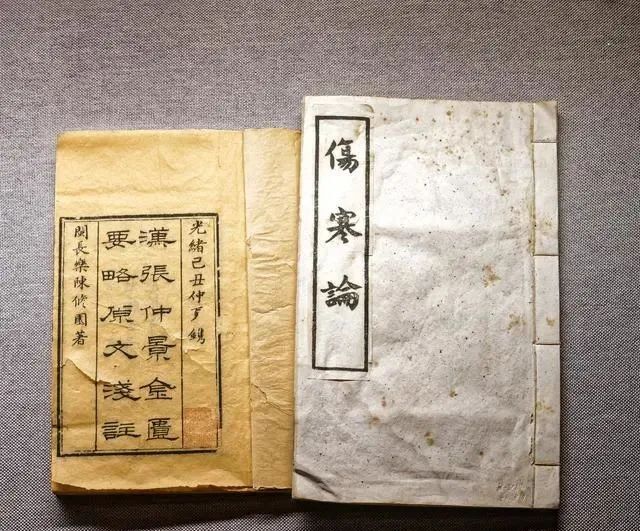 傷寒論
光緒己丑仲鐫
漢張仲景金匱
要略原文淺註
閩長樂陳修園著